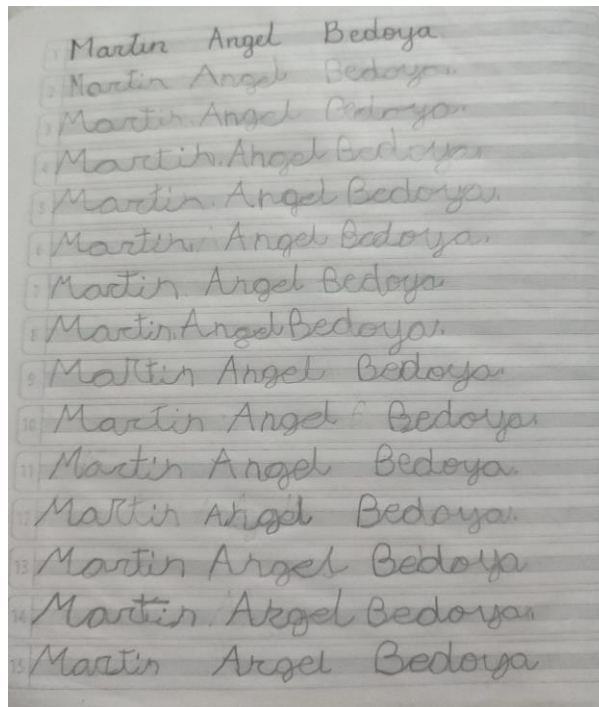 1 Martin Angel Bedoya
2 Martin Angel Bedoya.
3 Martin. Angel Bedoya.
4 Martin. Angel Bedoya
5 Martin. Angel Bedoya.
6 Martin. Angel Bedoya.
7 Martin Angel Bedoya
8 Martin. Angel Bedoya.
9 Martin Angel Bedoya
10 Martin Angel Bedoya.
11 Martin Angel Bedoya.
12 Martin Angel Bedoya.
13 Martin Angel Bedoya
14 Martin Angel Bedoya.
15 Martin Angel Bedoya